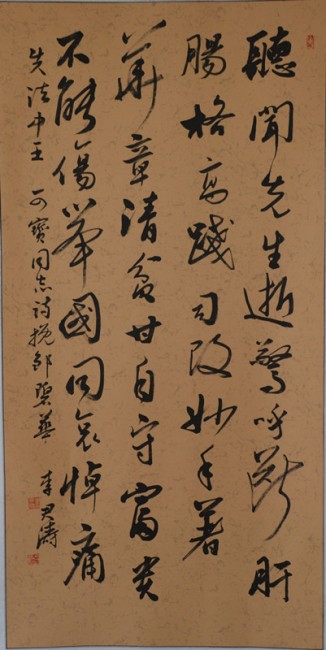 聽聞先生逝驚呼斷肝
腸格高踐司改妙手著
華章清貧甘自守富貴
不能傷举國同哀悼痛
失法中王 可寶同志詩挽邹碧華 李尹濤